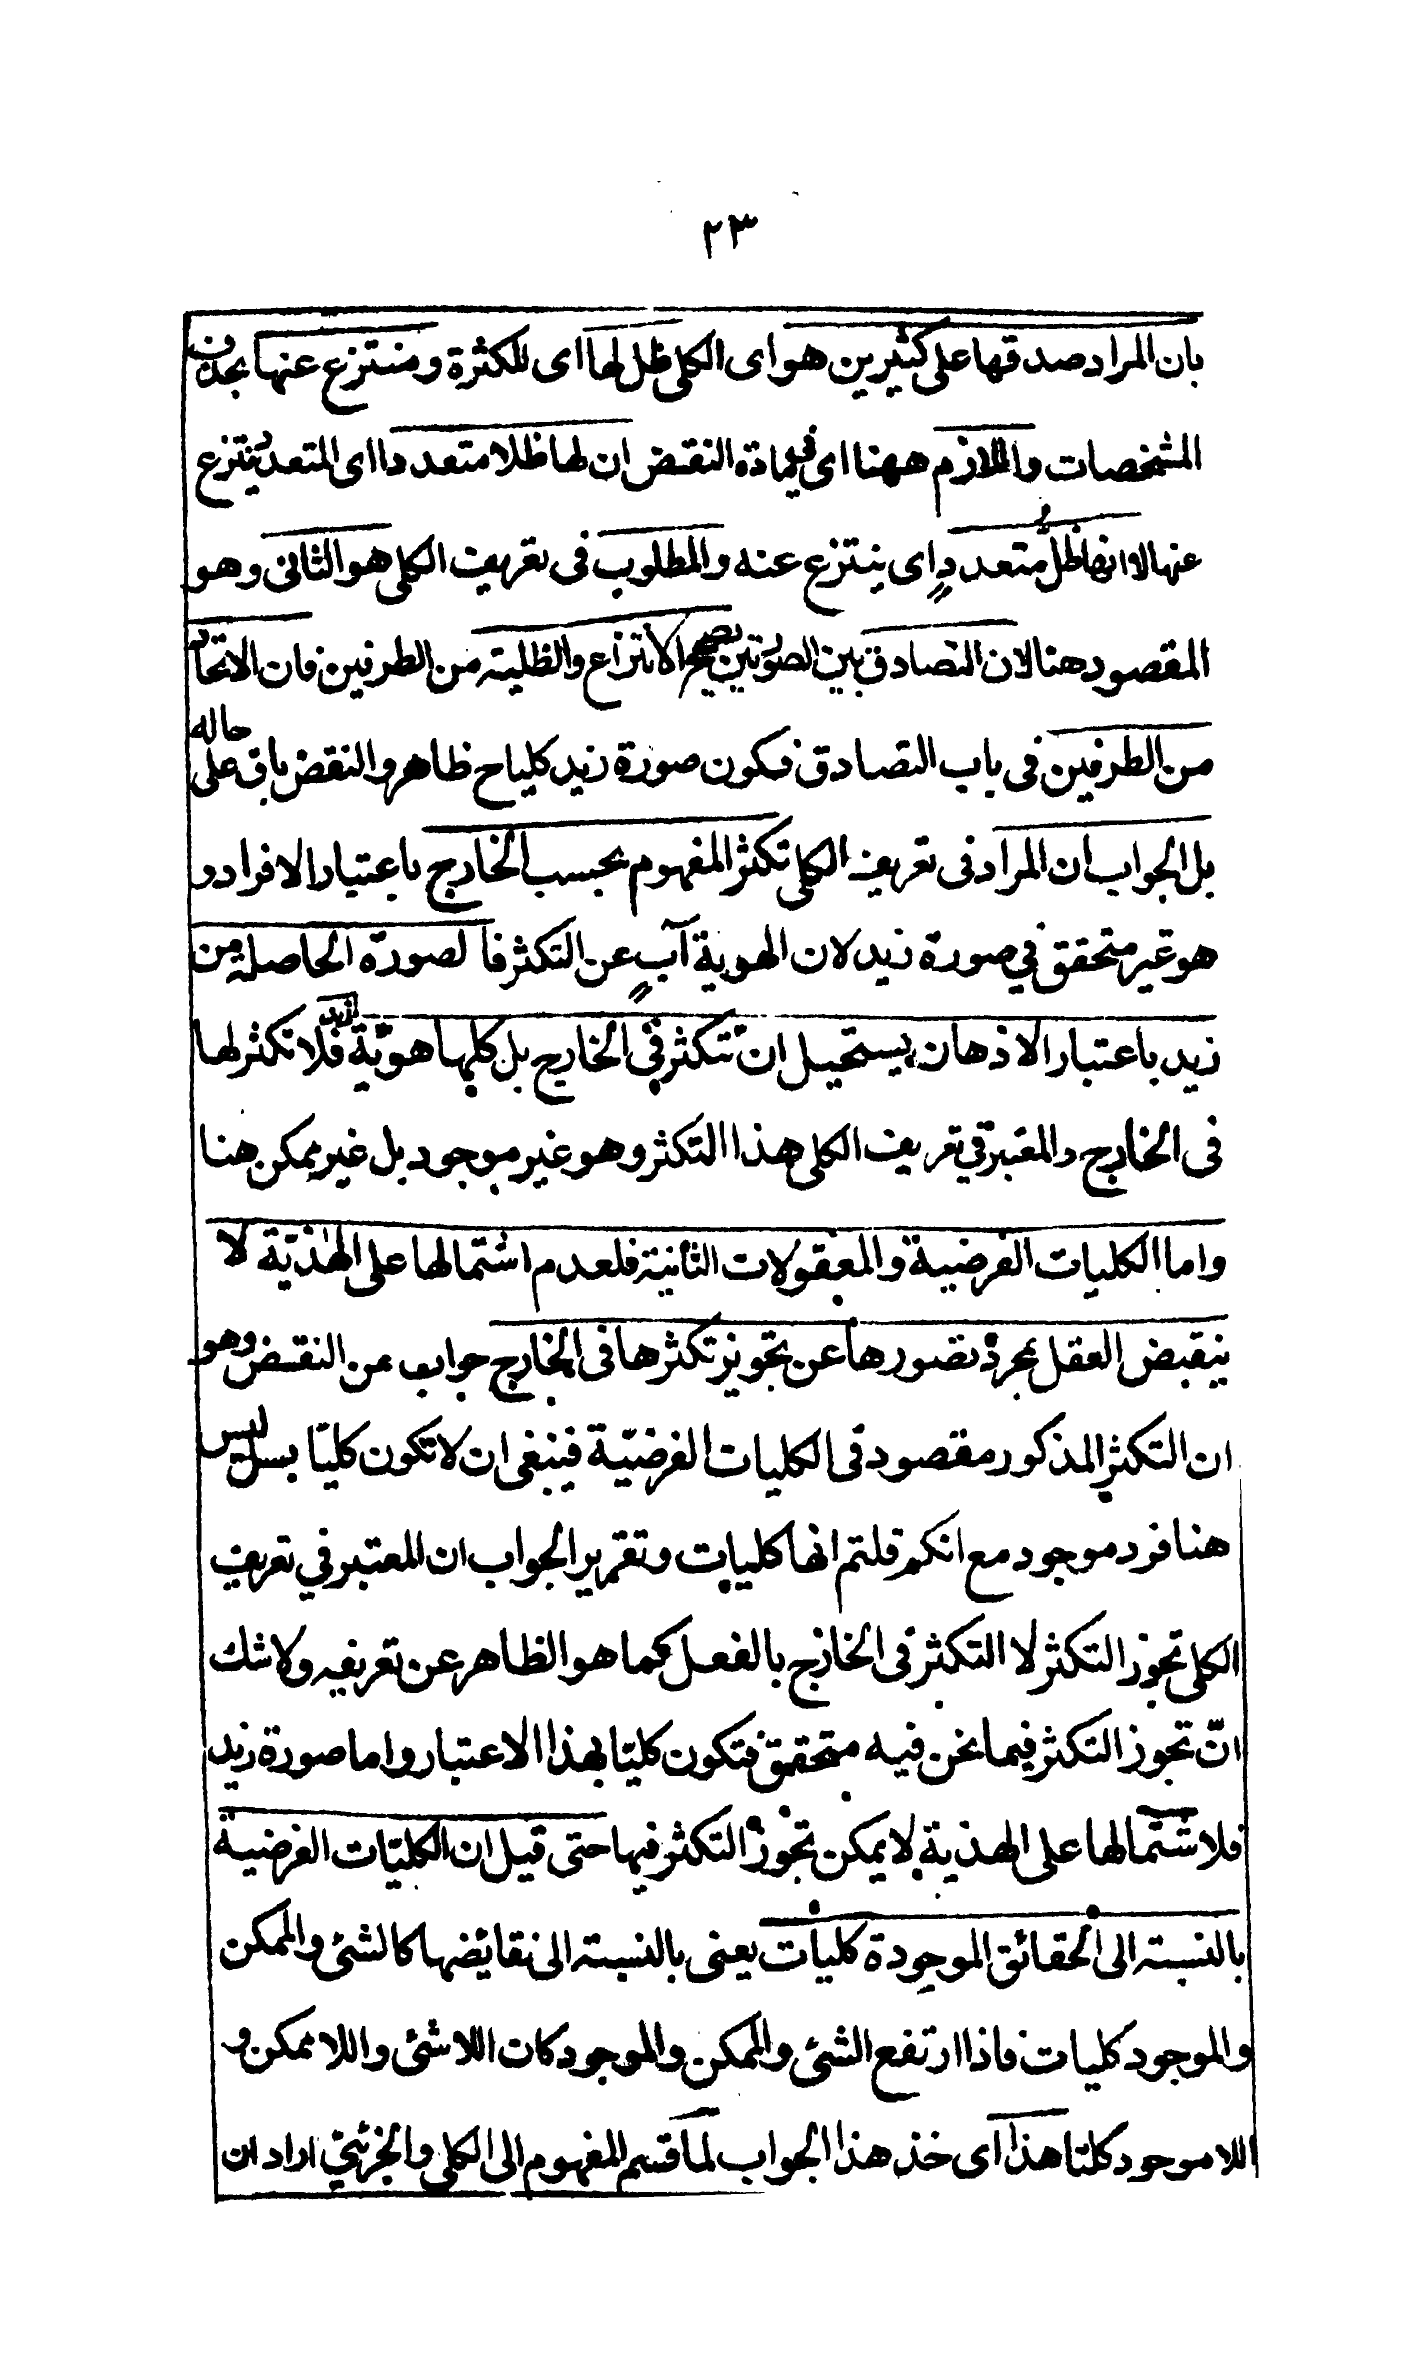 ٢٣
بان المراد صدقها على كثيرين هو اى الكلى ظل لها اى للكثرة ومنتزع عنها بحذف
المشخصات واللازم ههنا اى فيمادة النقض ان لها ظلا متعددا اى المتعدد ينتزع
عنها لا انها ظلُّ متعددٍ اى ينتزع عنه والمطلوب فى تعريف الكلى هو الثانى وهو
المقصود هنا لان التصادق بين الصورتين يصحح الانتزاع والظلية من الطرفين فان الاتحاد
من الطرفين فى باب التصادق فكون صورة زيد كلياح ظاهر والنقض باق على حاله
بل الجواب ان المراد فى تعريف الكلى تكثر المفهوم بحسب الخارج باعتبار الافراد و
هو غير متحقق في صورة زيد لان الهوية آبٍ عن التكثر فا لصورة الحاصلة من
زيد باعتبار الاذهان يستحيل ان تتكثر فى الخارج بل كلها هويّة زيد فلا تكثر لها
فى الخارج والمعتبر في تعريف الكلى هذا التكثر وهو غير موجود بل غير ممكن هنا
واما الكليات الفرضية والمعقولات الثانية فلعدم اشتمالها على الهذيّة لا
ينقبض العقل بمجرد تصورها عن تجويز تكثرها فى الخارج جواب عن النقض وهو
ان التكثر المذكور مقصود فى الكليات الفرضيّة فينبغى ان لا تكون كليّا بسل ليس
هنا فرد موجود مع انكم قلتم انها كليات وتقرير الجواب ان المعتبر في تعريف
الكلى تجوز التكثر لا التكثر فى الخارج بالفعل كما هو الظاهر عن تعريفه ولا شك
انّ تجوز التكثر فيما نحن فيه متحقق فتكون كليّا بهذا الاعتبار واما صورة زيد
فلا شتمالها على الهذية لا يمكن تجوز التكثر فيها حتى قيل ان الكليّات الفرضية
بالنسبة الى الحقائق الموجودة كليات يعنى بالنسبة الى نقائضها كالشئ والممكن
والموجود كليات فاذا ارتفع الشئ والممكن والموجود كان اللاشئ واللا ممكن و
اللا موجود كليّا هذا اى خذ هذا الجواب لما قسم المفهوم الى الكلى والجزئيّ اراد ان